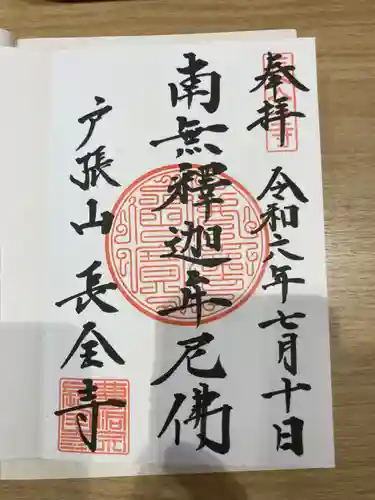 奉拝
令和六年七月十日
南無釋迦牟尼佛
戸張山長全寺